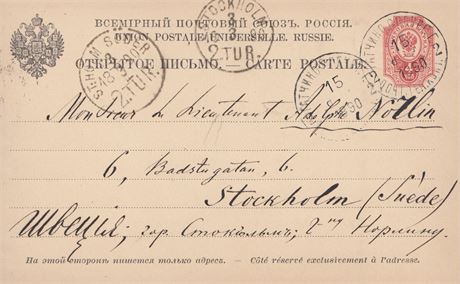 ВСЕМІРНЫЙ ПОЧТОВЫЙ СОЮЗЪ. РОССІЯ.
UNION POSTALE UNIVERSELLE. RUSSIE.
ОТКРЫТОЕ ПИСЬМО. CARTE POSTALE.
STOCKHOLM
3
2 TUR.
STOCKHOLM
18
2. TUR.
15
90
15
90
Monsieur le Lieutenant Adolphe
6, Badstugatan, 6.
Stockholm (Suède)
Швеція; гор. Стокгольмъ; Норлину.
На этой сторонѣ пишется только адресъ. — Côté réservé exclusivement à l'adresse.